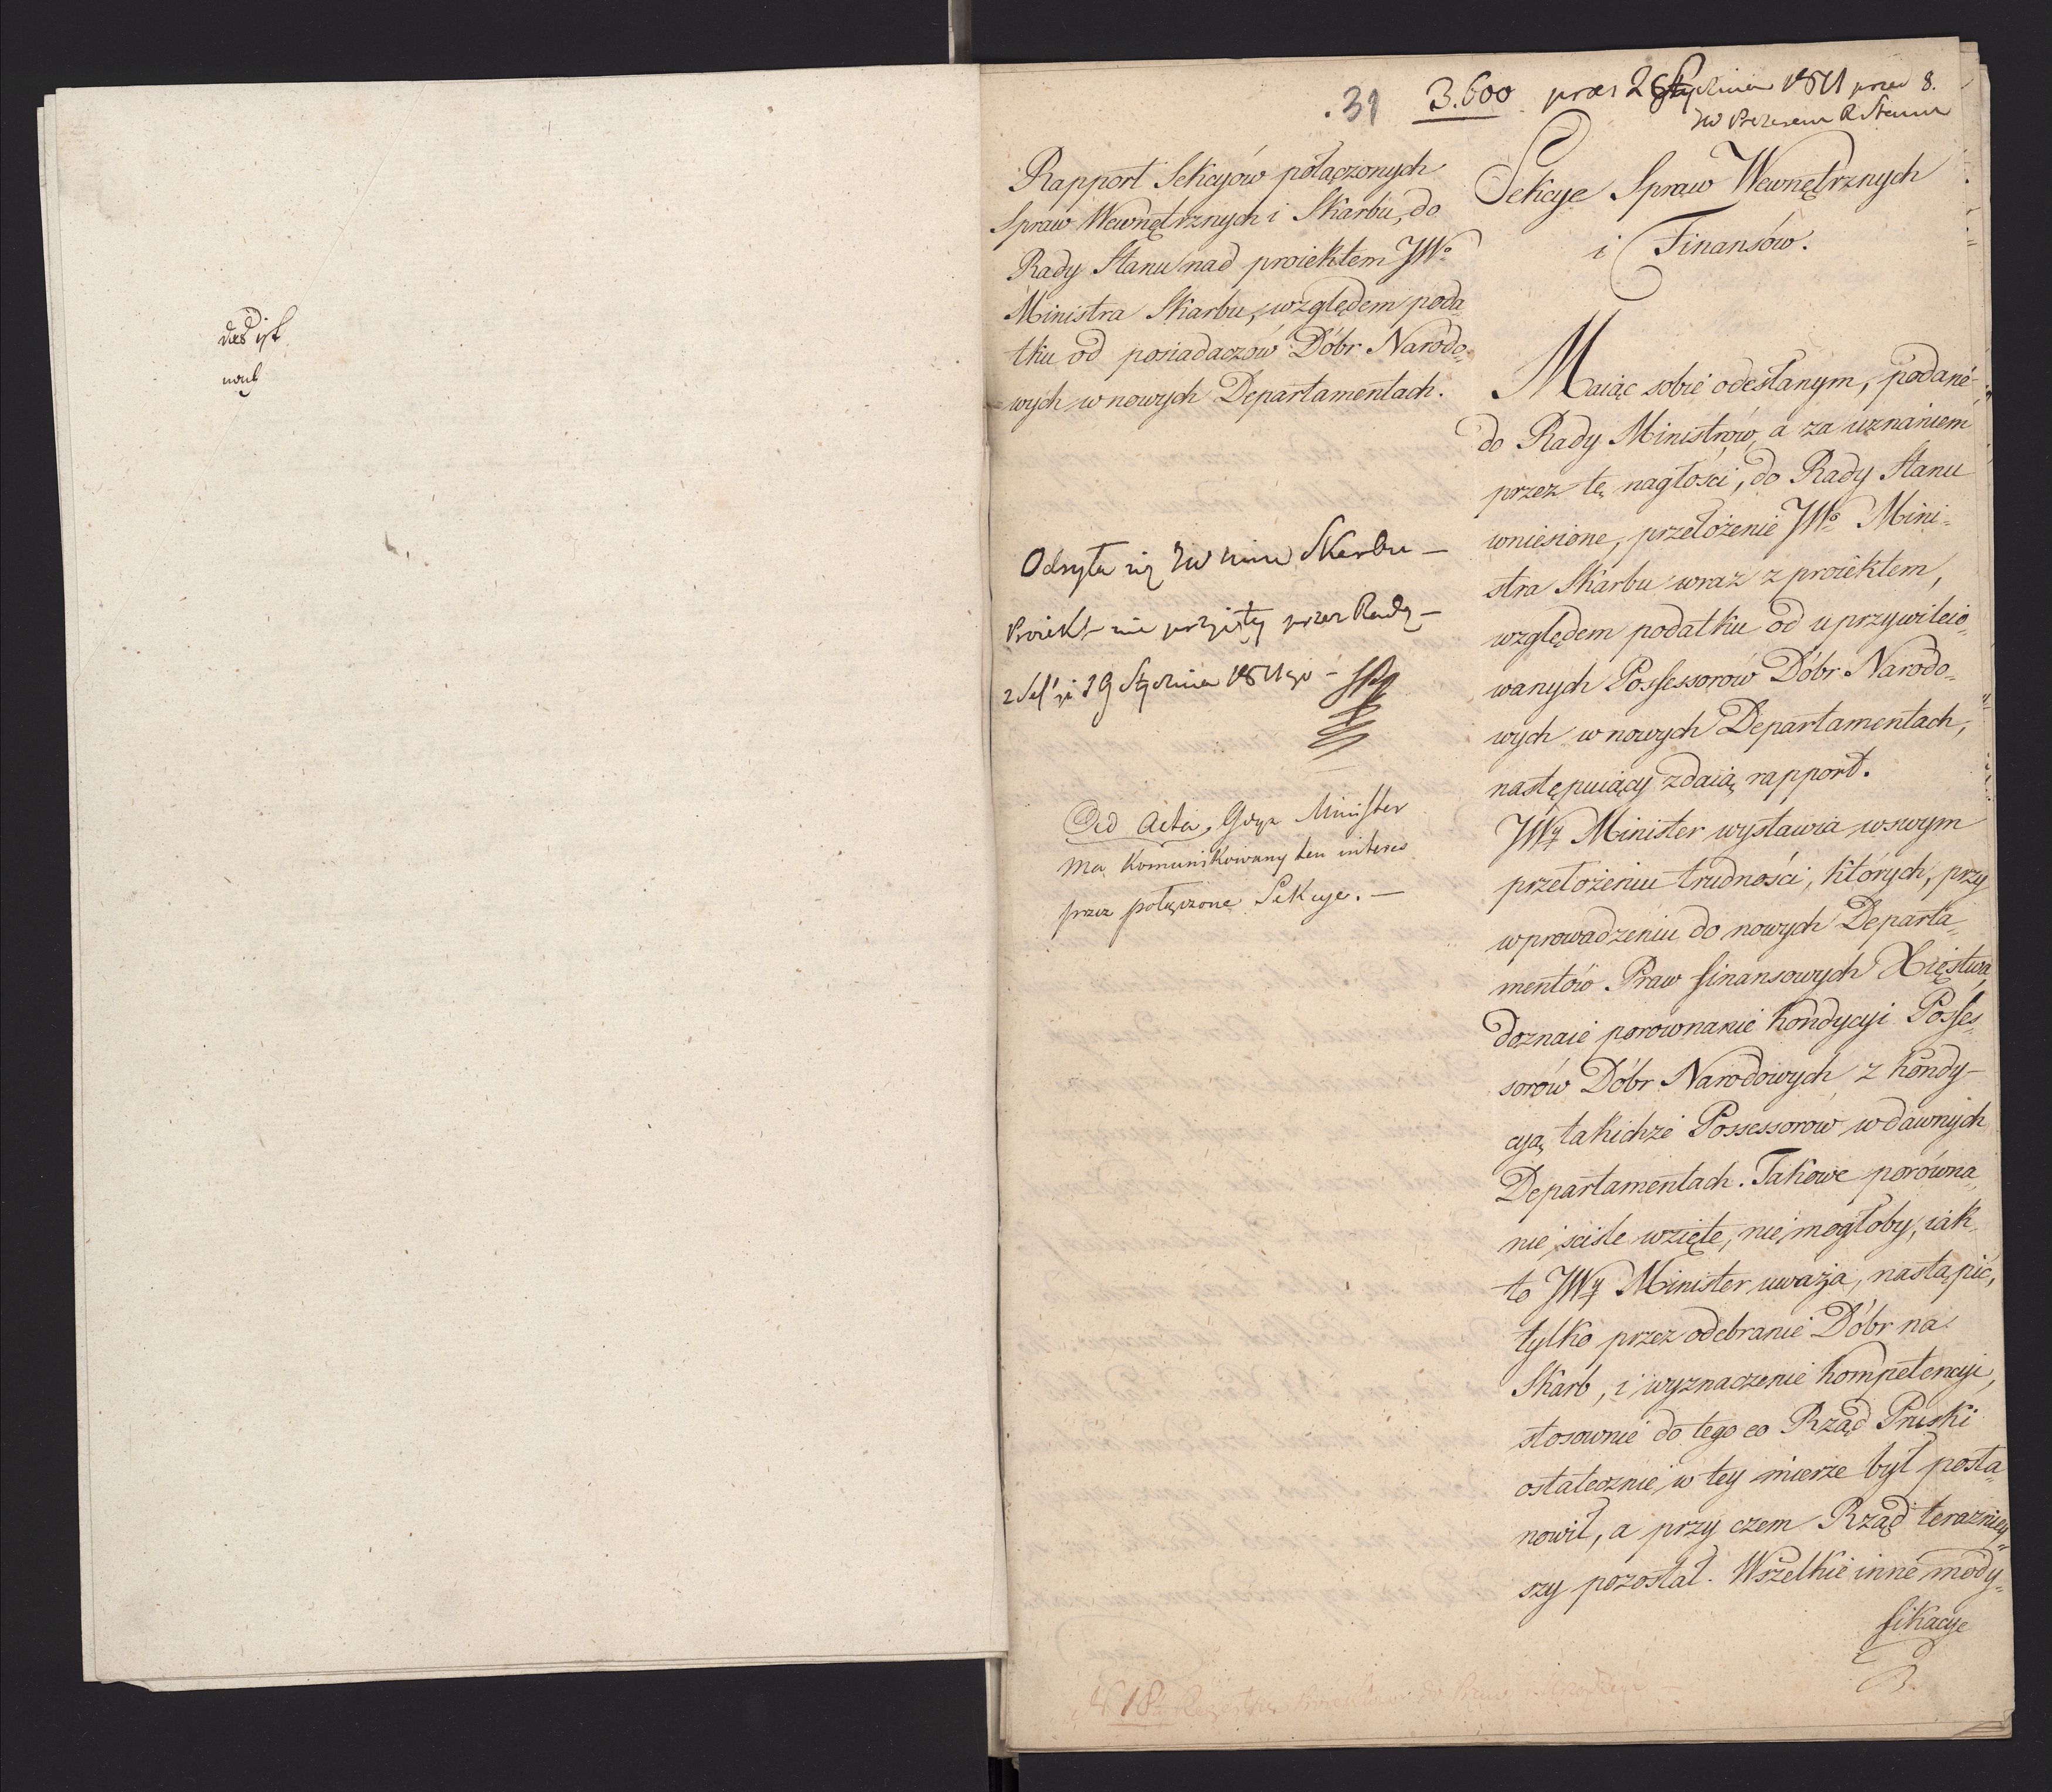 das ist
noch
31
3.600 præs 26 Stycznia 1811 przed 8.
JW Prezesem R Stanu
Rapport Sekcyów połączonych
Spraw Wewnętrznych i Skarbu, do
Rady Stanu nad proiektem JWo
Ministra Skarbu, względem poda-
tku od posiadaczów Dóbr Narodo-
wych w nowych Departamentach.
Odsyła się JW Skarbu —
Proiekt nie przyięty przez Radę —
z Ses: 29 Stycznia 1811go —
Ad Acta, Gdyż Minister
Ma Komunikowany ten interes
przez połączone Sekcye. —
Sekcye Spraw Wewnętrznych
i Finansów.
Maiąc sobie odesłanym, podane
do Rady Ministrów, a za uznaniem
przez tę nagłości, do Rady Stanu
wniesione, przełożenie JWo Mini-
stra Skarbu wraz z proiektem,
względem podatku od uprzywileio-
wanych Possessorów Dóbr Narodo-
wych w nowych Departamentach,
następuiący zdaią rapport.
JWy Minister wystawia w swym
przełożeniu trudności, których, przy
wprowadzeniu do nowych Departa-
mentów Praw finansowych Xięstwa,
doznaie porownanie kondycyi Posses-
sorów Dóbr Narodowych, z kondy-
cyą takichże Possessorow w dawnych
Departamentach. Takowe porówna-
nie, scisle wzięte, nie mogłoby, iak
to JWy Minister uważa, nastąpić,
tylko przez odebranie Dóbr na
Skarb, i wyznaczenie kompetencyi,
stosownie do tego co Rząd Pruski
ostatecznie w tey mierze był posta-
nowił, a przy czem Rząd teraźniey-
szy pozostał. Wszelkie inne mody-
fikacye
N 18 Proiektów do Praw